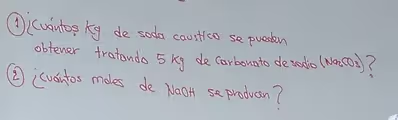 ① ¿Cuántos Kg de soda caustica se pueden
obtener tratando 5 Kg de Carbonato de sodio (Na₂CO₃)?
② ¿Cuántos moles de NaOH se producen?